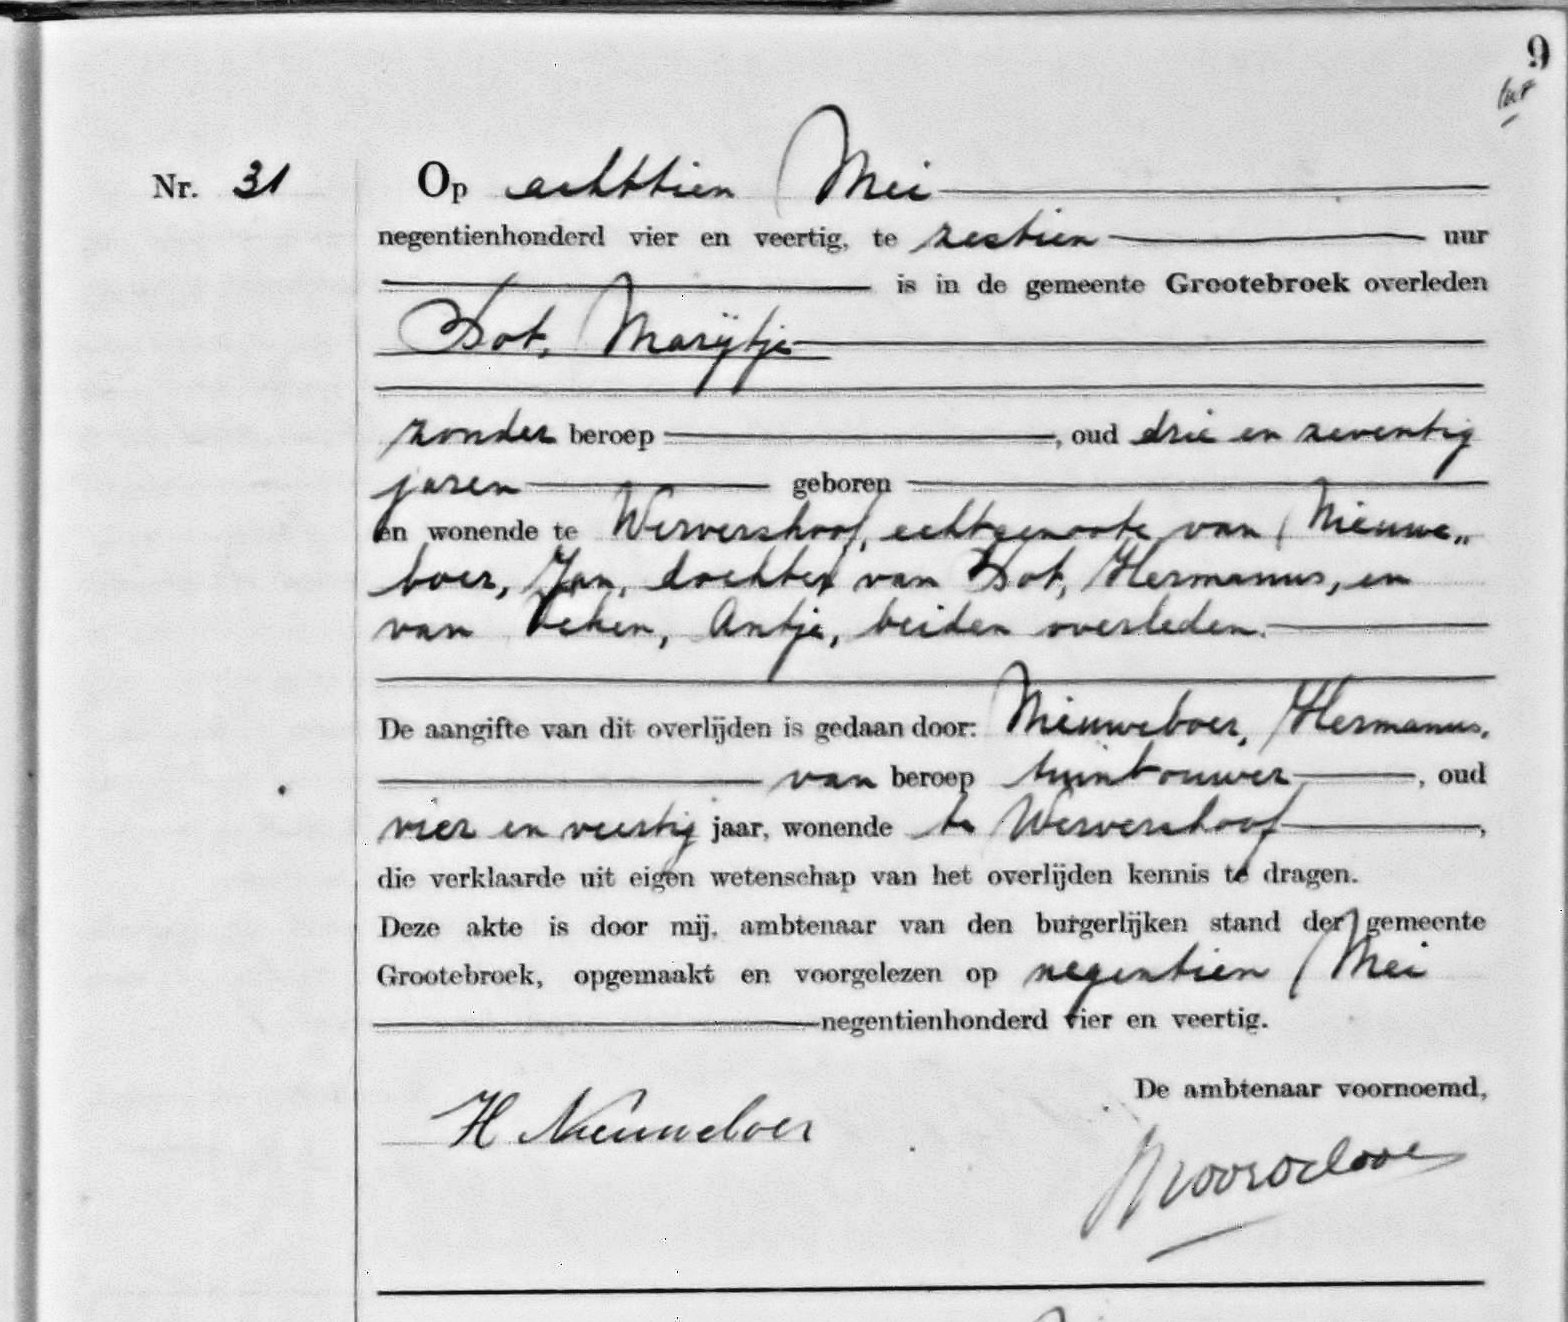 9
Nr. 31
Op achttien Mei
negentienhonderd vier en veertig, te zestien uur
is in de gemeente Grootebroek overleden
Bot, Marijtje
zonder beroep , oud drie en zeventig
jaren geboren
en wonende te Wervershoof, echtgenoote van Nieuwe„
boer, Jan, dochter van Bot, Hermanus, en
van Beken, Antje, beiden overleden.
De aangifte van dit overlijden is gedaan door: Nieuweboer, Hermanus.
van beroep tuinbouwer , oud
vier en veertig jaar, wonende te Wervershoof ,
die verklaarde uit eigen wetenschap van het overlijden kennis te dragen.
Deze akte is door mij, ambtenaar van den burgerlijken stand der gemeente
Grootebroek, opgemaakt en voorgelezen op negentien Mei
negentienhonderd vier en veertig.
De ambtenaar voornoemd,
H Nieuweboer